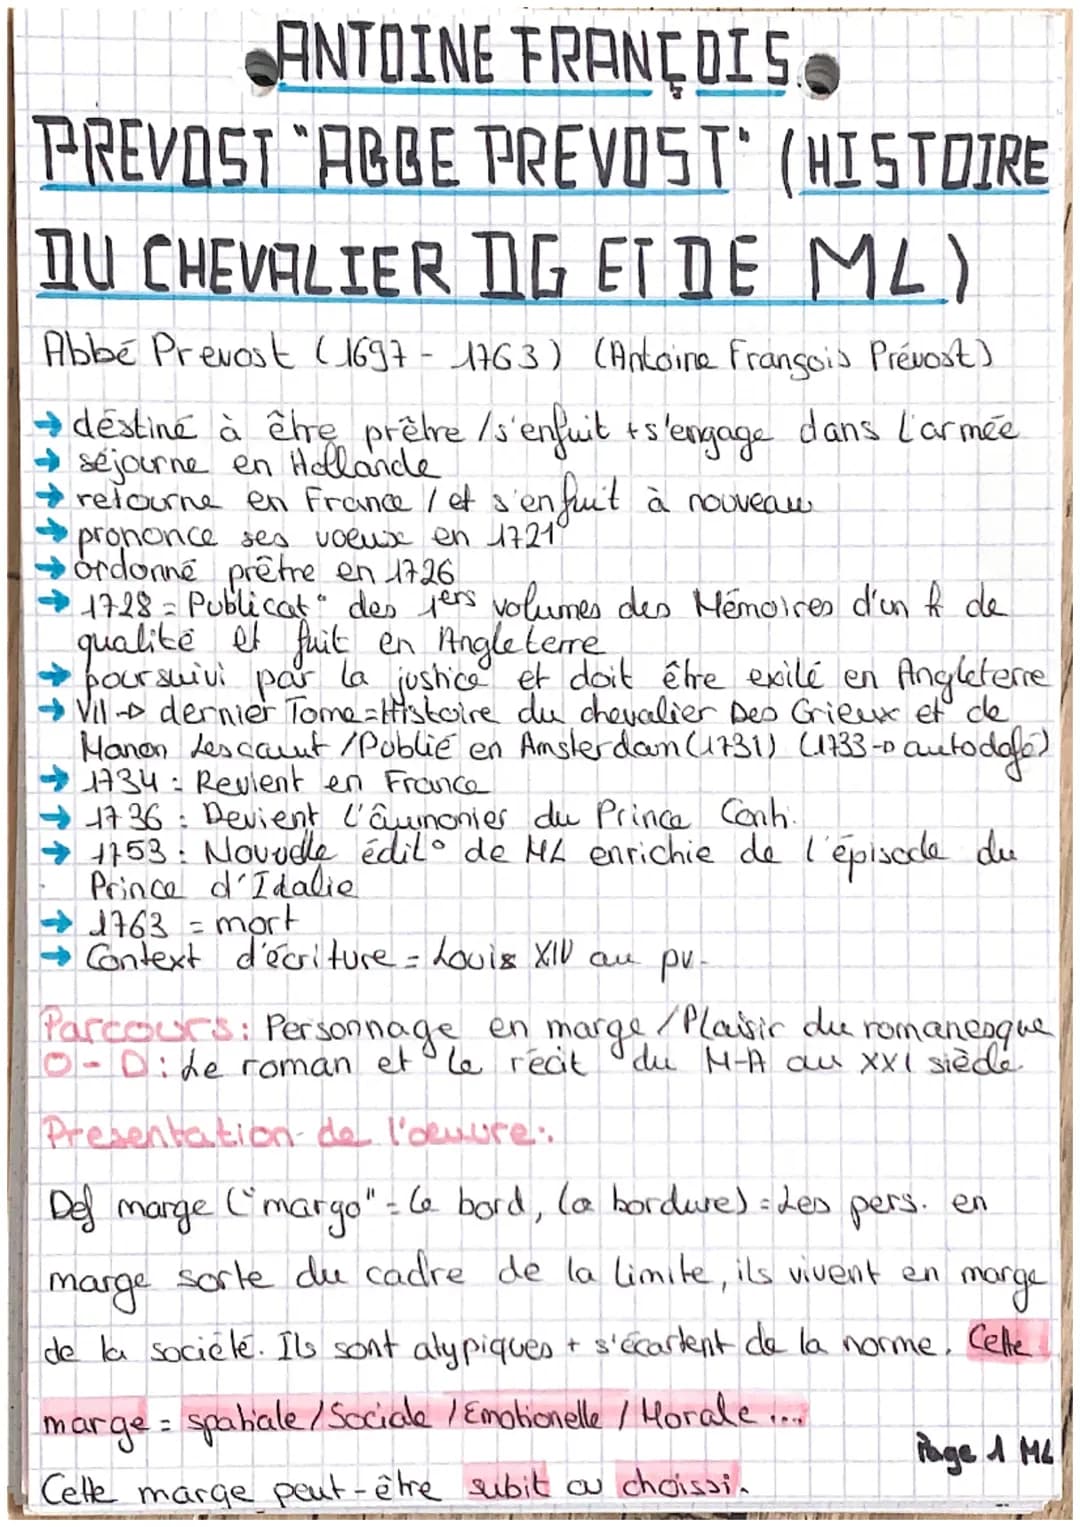 ANTOINE FRANÇOIS
PREVOST "ABBE PREVOST" (HISTOIRE
DU CHEVALIER DG ET DE ML)
Abbé Prevost (1697 - 1763) (Antoine François Prévost)
→ déstiné à être prêtre /s'enfuit + s'engage dans l'armée
→ séjourne en Hollande
→ retourne en France / et s'enfuit à nouveau
→ prononce ses voeux en 1721
→ ordonné prêtre en 1726
→ 1728 = Publicat° des 1ers volumes des Mémoires d'un h de
qualité et fuit en Angleterre
→ poursuivi par la justice et doit être exilé en Angleterre
→ VII → dernier Tome = Histoire du chevalier Des Grieux et de
Manon Lescaut / Publié en Amsterdam (1731) (1733 → autodafé)
→ 1734 : Revient en France
→ 1736 : Devient l'aumonier du Prince Conti
→ 1753 : Nouvelle édit° de ML enrichie de l'épisode du
Prince d'Idalie
→ 1763 = mort
→ Context d'écriture = Louis XIV au pv.
Parcours : Personnage en marge / Plaisir du romanesque
O - D : Le roman et le récit du M-A au XXI siècle
Presentation de l'oeuvre :
Def marge ("margo" = le bord, la bordure) = Les pers. en
marge sorte du cadre de la limite, ils vivent en marge
de la société. Ils sont atypiques + s'écartent de la norme. Cette
marge = spatiale / Sociale / Emotionelle / Morale ...
Page 1 ML
Cette marge peut-être subit ou choissi.